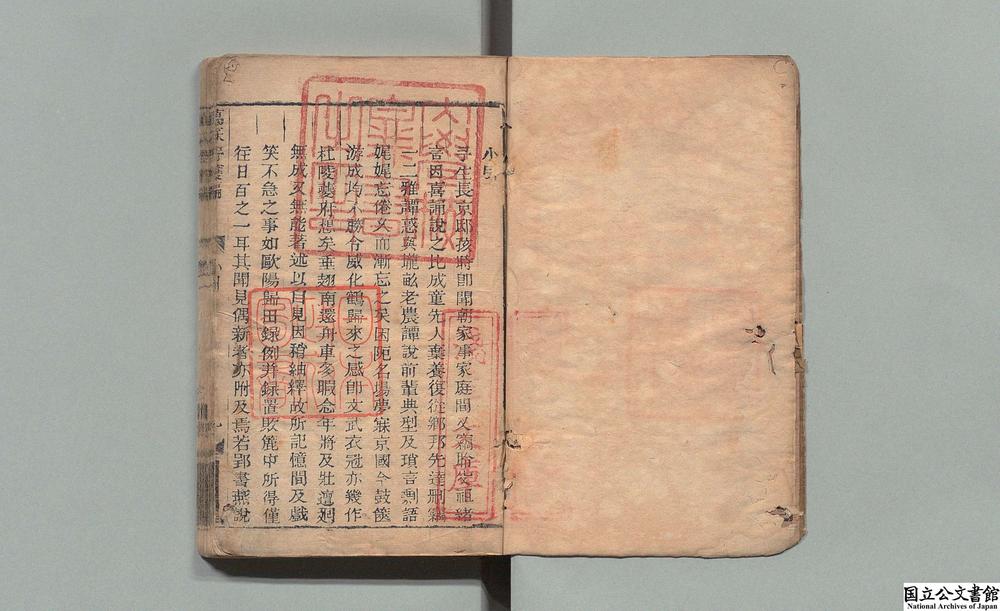 小引
予生長京邸孩時即聞朝家事家庭間又竊聆父祖緒
言因喜誦說之比成童先人棄養復從鄉邦先達剽竊
一二雅譚或與壠畝老農譚說前輩典型及瑣言剩語
娓娓忘倦久而漸忘之矣困阨名場夢寐京國今鼓篋
游成均不勝令威化鶴歸來之感即文武衣冠亦幾作
杜陵夔府想矣垂翅南還舟車多暇念年將及壯邅迴
無成又無能著述以自見因稍紬繹故所記憶間及戲
笑不急之事如歐陽歸田錄例并錄置敗簏中所得僅
往日百之一耳其聞見偶新者亦附及焉若郢書燕說
萬
小引
一
国立公文書館
National Archives of Japan